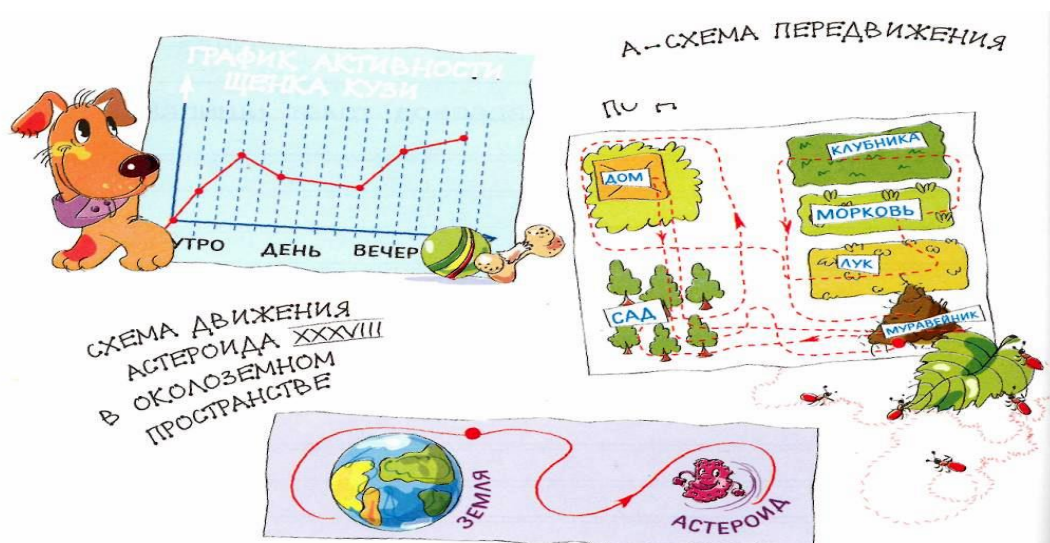 ГРАФИК АКТИВНОСТИ
ЩЕНКА КУЗИ
УТРО ДЕНЬ ВЕЧЕР
А-СХЕМА ПЕРЕДВИЖЕНИЯ
ДОМ
КЛУБНИКА
МОРКОВЬ
ЛУК
САД
МУРАВЕЙНИК
СХЕМА ДВИЖЕНИЯ
АСТЕРОИДА XXXVIII
В ОКОЛОЗЕМНОМ
ПРОСТРАНСТВЕ
ЗЕМЛЯ
АСТЕРОИД